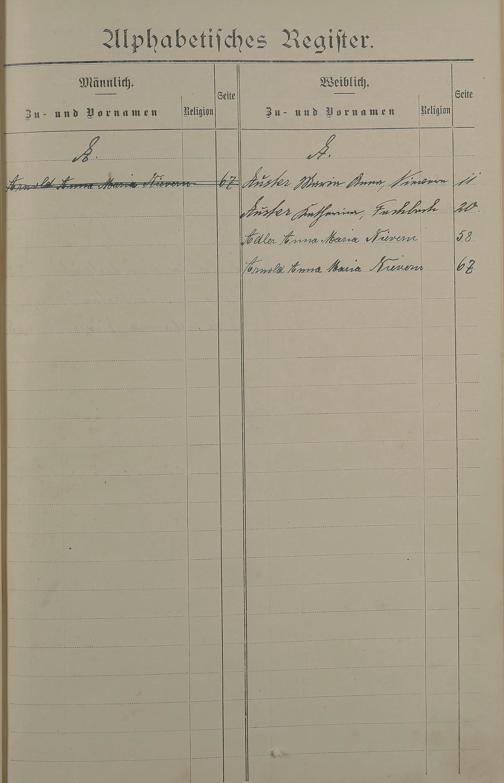 Alphabetisches Register.
Männlich.
Zu- und Vornamen Religion Seite
A.
Arnold Anna Maria Nievern 67
Weiblich.
Zu- und Vornamen Religion Seite
A.
Auster Maria Anna, Nievern 11
Auster Katharina, Fachbach 20.
Adler Anna Maria Nievern 58
Arnold Anna Maria Nievern 67